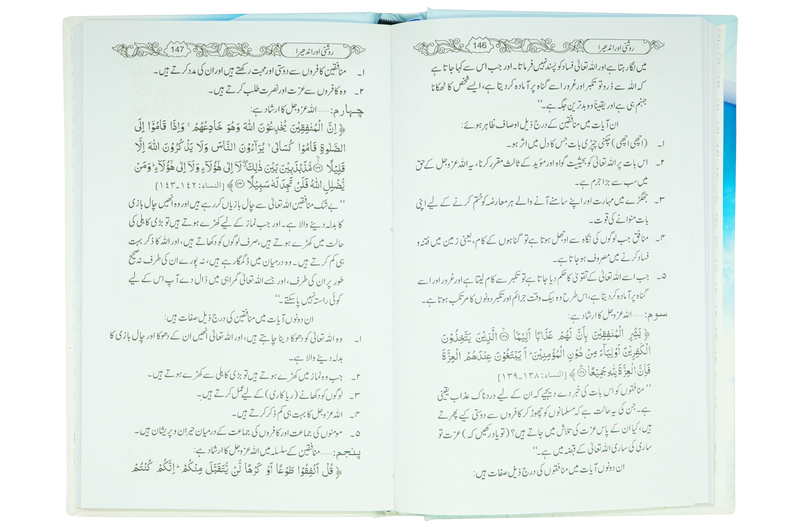 146 روشنی اور اندھیرا
میں لگا رہتا ہے اور اللہ تعالیٰ فساد کو پسند نہیں فرماتا۔ اور جب اس سے کہا جاتا ہے
کہ اللہ سے ڈر و تو تکبر اور غرور اسے گناہ پر آمادہ کر دیتا ہے، ایسے شخص کا ٹھکانا
جہنم ہی ہے اور یقیناً وہ بدترین جگہ ہے۔‘‘
ان آیات میں منافقین کے درج ذیل اوصاف ظاہر ہوئے:
۱۔ (اچھی اچھی) چکنی چپڑی بات جس کا دل میں اثر ہو۔
۲۔ اس بات پر اللہ تعالیٰ کو بحیثیت گواہ اور مؤید کے ثالث مقرر کرنا، یہ اللہ عزوجل کے حق
میں سب سے بڑا جرم ہے۔
۳۔ جھگڑے میں مہارت اور اپنے سامنے آنے والے ہر معارضہ کو ختم کرنے کے لیے اپنی
بات منوانے کی قوت۔
۴۔ منافق جب لوگوں کی نگاہ سے اوجھل ہوتا ہے تو گناہوں کے کام، یعنی زمین میں فتنہ و
فساد کرنے میں مصروف ہو جاتا ہے۔
۵۔ جب اسے اللہ تعالیٰ کے تقویٰ کا حکم دیا جاتا ہے تو تکبر سے کام لیتا ہے اور غرور اور اسے
گناہ پر آمادہ کر دیتا ہے، اس طرح وہ بیک وقت جرائم اور تکبر دونوں کا مرتکب ہوتا ہے۔
سوم:...... اللہ عزوجل کا ارشاد ہے:
﴿ بَشِّرِ الْمُنٰفِقِيْنَ بِاَنَّ لَهُمْ عَذَابًا اَلِيْمًا ۝ الَّذِيْنَ يَتَّخِذُوْنَ
الْكٰفِرِيْنَ اَوْلِيَآءَ مِنْ دُوْنِ الْمُؤْمِنِيْنَ ؕ اَيَبْتَغُوْنَ عِنْدَهُمُ الْعِزَّةَ
فَاِنَّ الْعِزَّةَ لِلّٰهِ جَمِيْعًا ۝ ﴾ [النساء: ۱۳۸۔۱۳۹]
’’منافقوں کو اس بات کی خبر دے دیجیے کہ ان کے لیے دردناک عذاب یقینی
ہے۔ جن کی یہ حالت ہے کہ مسلمانوں کو چھوڑ کر کافروں سے دوستی کیے پھرتے
ہیں، کیا ان کے پاس عزت کی تلاش میں جاتے ہیں؟ (تو یاد رکھیں کہ) عزت تو
ساری کی ساری اللہ تعالیٰ کے قبضہ میں ہے۔‘‘
ان دونوں آیات میں منافقوں کی درج ذیل صفات ہیں:
روشنی اور اندھیرا 147
۱۔ منافقین کافروں سے دوستی اور محبت رکھتے ہیں اور ان کی مدد کرتے ہیں۔
۲۔ وہ کافروں سے عزت اور نصرت طلب کرتے ہیں۔
چہارم:...... اللہ عزوجل کا ارشاد ہے:
﴿ اِنَّ الْمُنٰفِقِيْنَ يُخٰدِعُوْنَ اللّٰهَ وَهُوَ خَادِعُهُمْ ۚ وَاِذَا قَامُوْٓا اِلَى
الصَّلٰوةِ قَامُوْا كُسَالٰى ۙ يُرَآءُوْنَ النَّاسَ وَلَا يَذْكُرُوْنَ اللّٰهَ اِلَّا
قَلِيْلًا ۝ مُّذَبْذَبِيْنَ بَيْنَ ذٰلِكَ ۖ لَآ اِلٰى هٰٓؤُلَآءِ وَلَآ اِلٰى هٰٓؤُلَآءِ ؕ وَمَنْ
يُّضْلِلِ اللّٰهُ فَلَنْ تَجِدَ لَهٗ سَبِيْلًا ۝ ﴾ [النساء: ۱۴۲۔۱۴۳]
’’بے شک منافقین اللہ تعالیٰ سے چال بازیاں کر رہے ہیں اور وہ انھیں چال بازی
کا بدلہ دینے والا ہے۔ اور جب نماز کے لیے کھڑے ہوتے ہیں تو بڑی کاہلی کی
حالت میں کھڑے ہوتے ہیں، صرف لوگوں کو دکھاتے ہیں، اور اللہ کا ذکر بہت
ہی کم کرتے ہیں۔ وہ درمیان میں ڈگمگا رہے ہیں، نہ پورے ان کی طرف نہ صحیح
طور پر ان کی طرف، اور جسے اللہ تعالیٰ گمراہی میں ڈال دے آپ اس کے لیے
کوئی راستہ نہیں پا سکتے۔‘‘
ان دونوں آیات میں منافقین کی درج ذیل صفات ہیں:
۱۔ وہ اللہ تعالیٰ کو دھوکا دینا چاہتے ہیں، اور اللہ تعالیٰ انھیں ان کے دھوکا اور چال بازی کا
بدلہ دینے والا ہے۔
۲۔ جب وہ نماز میں کھڑے ہوتے ہیں تو بڑی کاہلی سے کھڑے ہوتے ہیں۔
۳۔ لوگوں کو دکھانے (ریاکاری) کے لیے عمل کرتے ہیں۔
۴۔ اللہ عزوجل کا بہت ہی کم ذکر کرتے ہیں۔
۵۔ مومنوں کی جماعت اور کافروں کی جماعت کے درمیان حیران و پریشان ہیں۔
پنجم:...... منافقین کے سلسلہ میں اللہ عزوجل کا ارشاد ہے:
﴿ قُلْ اَنْفِقُوْا طَوْعًا اَوْ كَرْهًا لَّنْ يُّتَقَبَّلَ مِنْكُمْ ؕ اِنَّكُمْ كُنْتُمْ